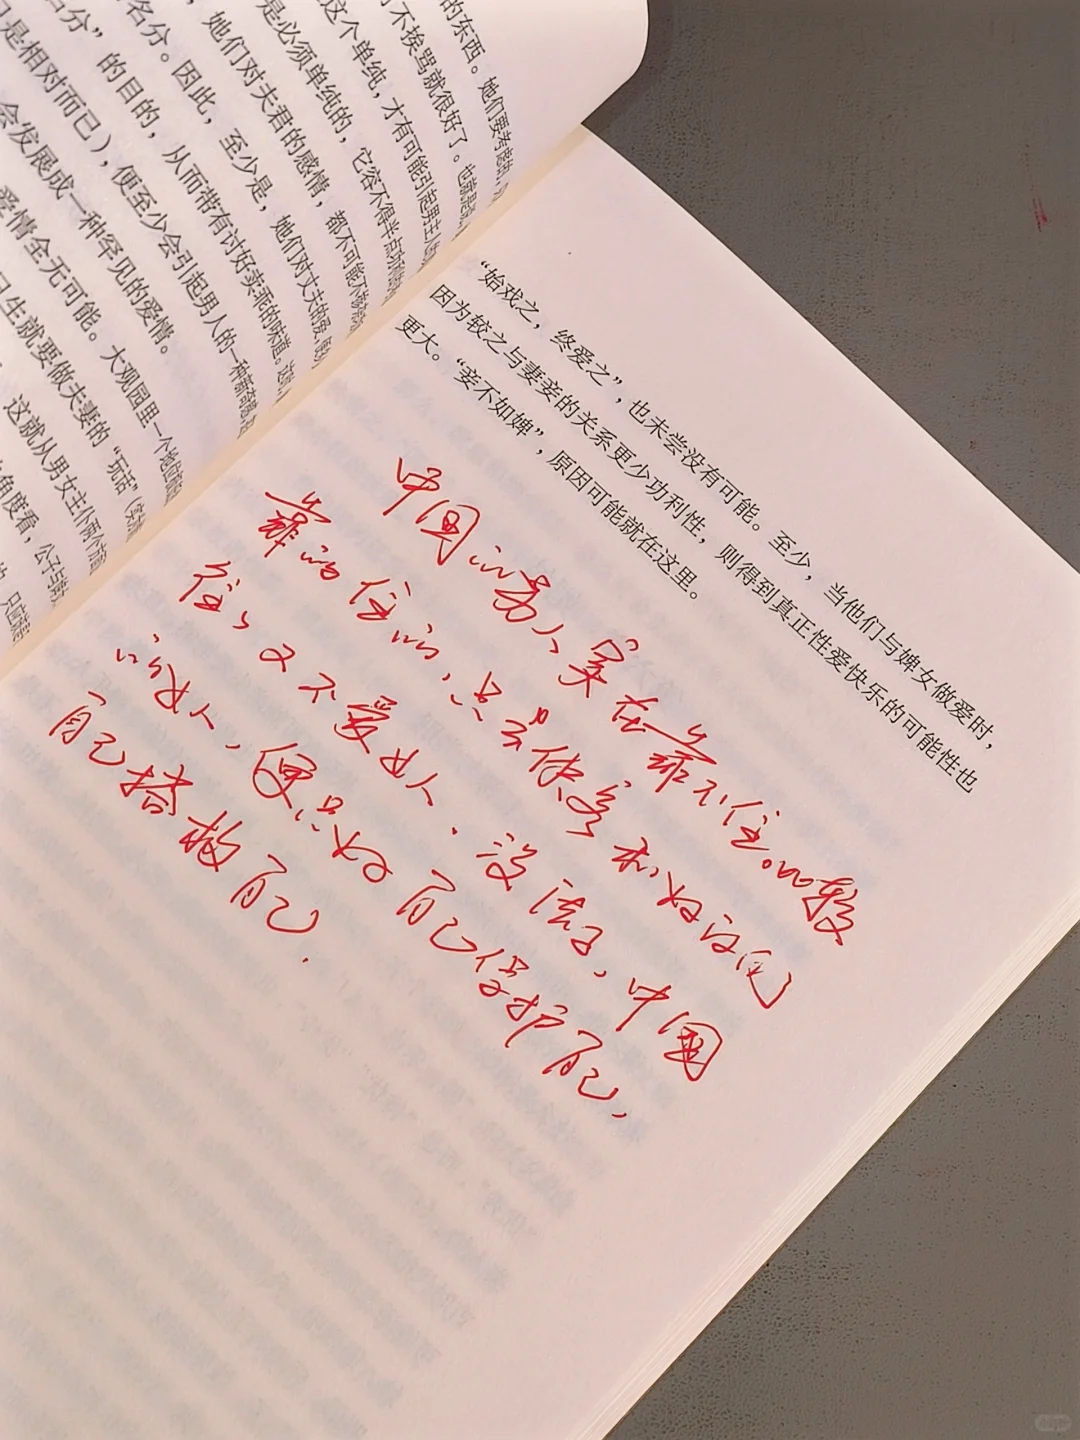 的东西。她们要考虑的，
不挨骂就很好了。也就是说，
这个单纯，才有可能引起男主人
是必须单纯的，它容不得半点
她们对夫君的感情，都不可能不
名分。因此，至少是，她们对丈夫的爱，
名分”的目的，从而带有讨好卖乖的味道。
是相对而已），便至少会引起男人的一种新奇感
会发展成一种罕见的爱情。
爱情全无可能。大观园里一个
生就要做夫妻的“玩话”
这就从男女主仆两个
角度看，公子与
“始戏之，终爱之”，也未尝没有可能。至少，当他们与婢女做爱时，
因为较之与妻妾的关系更少功利性，则得到真正性爱快乐的可能性也
更大。“妾不如婢”，原因可能就在这里。
中国的男人实在靠不住。比较
靠的住的，只去侠客和好汉间
往往又不爱女人。没法子，中国
的女人，便只好自己保护自己，
自己搭救自己.